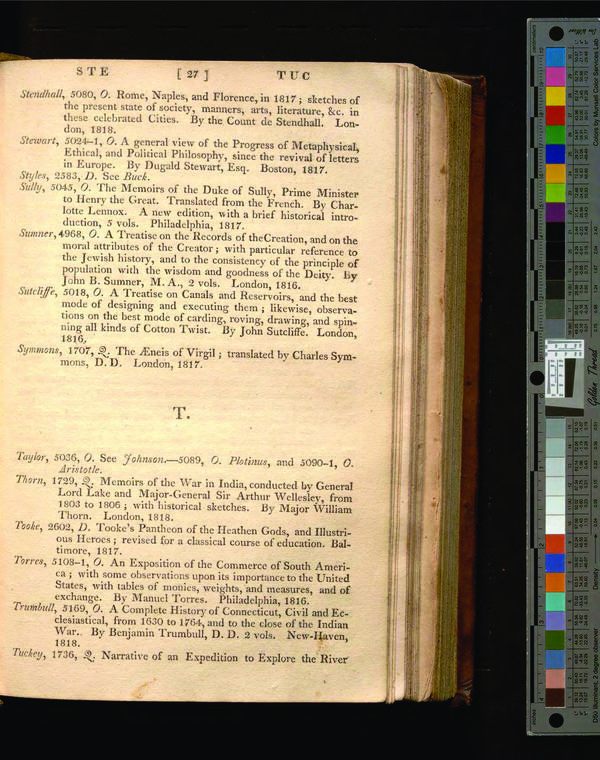 STE [ 27 ] TUC
Stendhall, 5080, O. Rome, Naples, and Florence, in 1817 ; sketches of
the present state of society, manners, arts, literature, &c. in
these celebrated Cities. By the Count de Stendhall. Lon-
don, 1818.
Stewart, 5024-1, O. A general view of the Progress of Metaphysical,
Ethical, and Political Philosophy, since the revival of letters
in Europe. By Dugald Stewart, Esq. Boston, 1817.
Styles, 2583, D. See Buck.
Sully, 5045, O. The Memoirs of the Duke of Sully, Prime Minister
to Henry the Great. Translated from the French. By Char-
lotte Lennox. A new edition, with a brief historical intro-
duction, 5 vols. Philadelphia, 1817.
Sumner, 4968, O. A Treatise on the Records of theCreation, and on the
moral attributes of the Creator ; with particular reference to
the Jewish history, and to the consistency of the principle of
population with the wisdom and goodness of the Deity. By
John B. Sumner, M. A., 2 vols. London, 1816.
Sutcliffe, 5018, O. A Treatise on Canals and Reservoirs, and the best
mode of designing and executing them ; likewise, observa-
tions on the best mode of carding, roving, drawing, and spin-
ning all kinds of Cotton Twist. By John Sutcliffe. London,
1816.
Symmons, 1707, Q. The Æneis of Virgil ; translated by Charles Sym-
mons, D. D. London, 1817.
T.
Taylor, 5036, O. See Johnson.—5089, O. Plotinus, and 5090-1, O.
Aristotle.
Thorn, 1729, Q. Memoirs of the War in India, conducted by General
Lord Lake and Major-General Sir Arthur Wellesley, from
1803 to 1806 ; with historical sketches. By Major William
Thorn. London, 1818.
Tooke, 2602, D. Tooke's Pantheon of the Heathen Gods, and Illustri-
ous Heroes ; revised for a classical course of education. Bal-
timore, 1817.
Torres, 5108-1, O. An Exposition of the Commerce of South Ameri-
ca ; with some observations upon its importance to the United
States, with tables of monies, weights, and measures, and of
exchange. By Manuel Torres. Philadelphia, 1816.
Trumbull, 5169, O. A Complete History of Connecticut, Civil and Ec-
clesiastical, from 1630 to 1764, and to the close of the Indian
War. By Benjamin Trumbull, D. D. 2 vols. New-Haven,
1818.
Tuckey, 1736, Q. Narrative of an Expedition to Explore the River
Colors by Munsell Color Services Lab
Golden Thread
Density